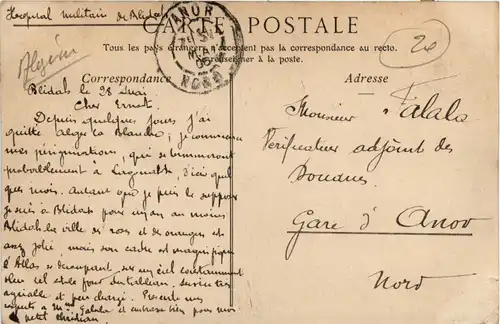 Hopital militaire de Blidah
CARTE POSTALE
Tous les pays étrangers n'acceptent pas la correspondance au recto.
Renseigner à la poste.
Algérie
20
Correspondance
Adresse
NORD
Blidah le 28 mai
Cher Ernest.
Depuis quelques jours j'ai
quitté Alger la Blanche; je commence
mes pérégrinations, qui se termineront
probablement à Laghouat, d'ici quel
ques mois. Autant que je puis le supposer
je suis à Blidah pour un an au moins
Blidah la ville des roses et des oranges est
assez jolie, mais son cadre est magnifique
l'Atlas se découpant sur un ciel constamment
bleu
agréable et peu chargé. Présente mes
respects à Mme Falala et embrasse bien pour moi
petit chrétien
Monsieur Falala
Vérificateur adjoint des
Douanes
Gare d'Anor
Nord